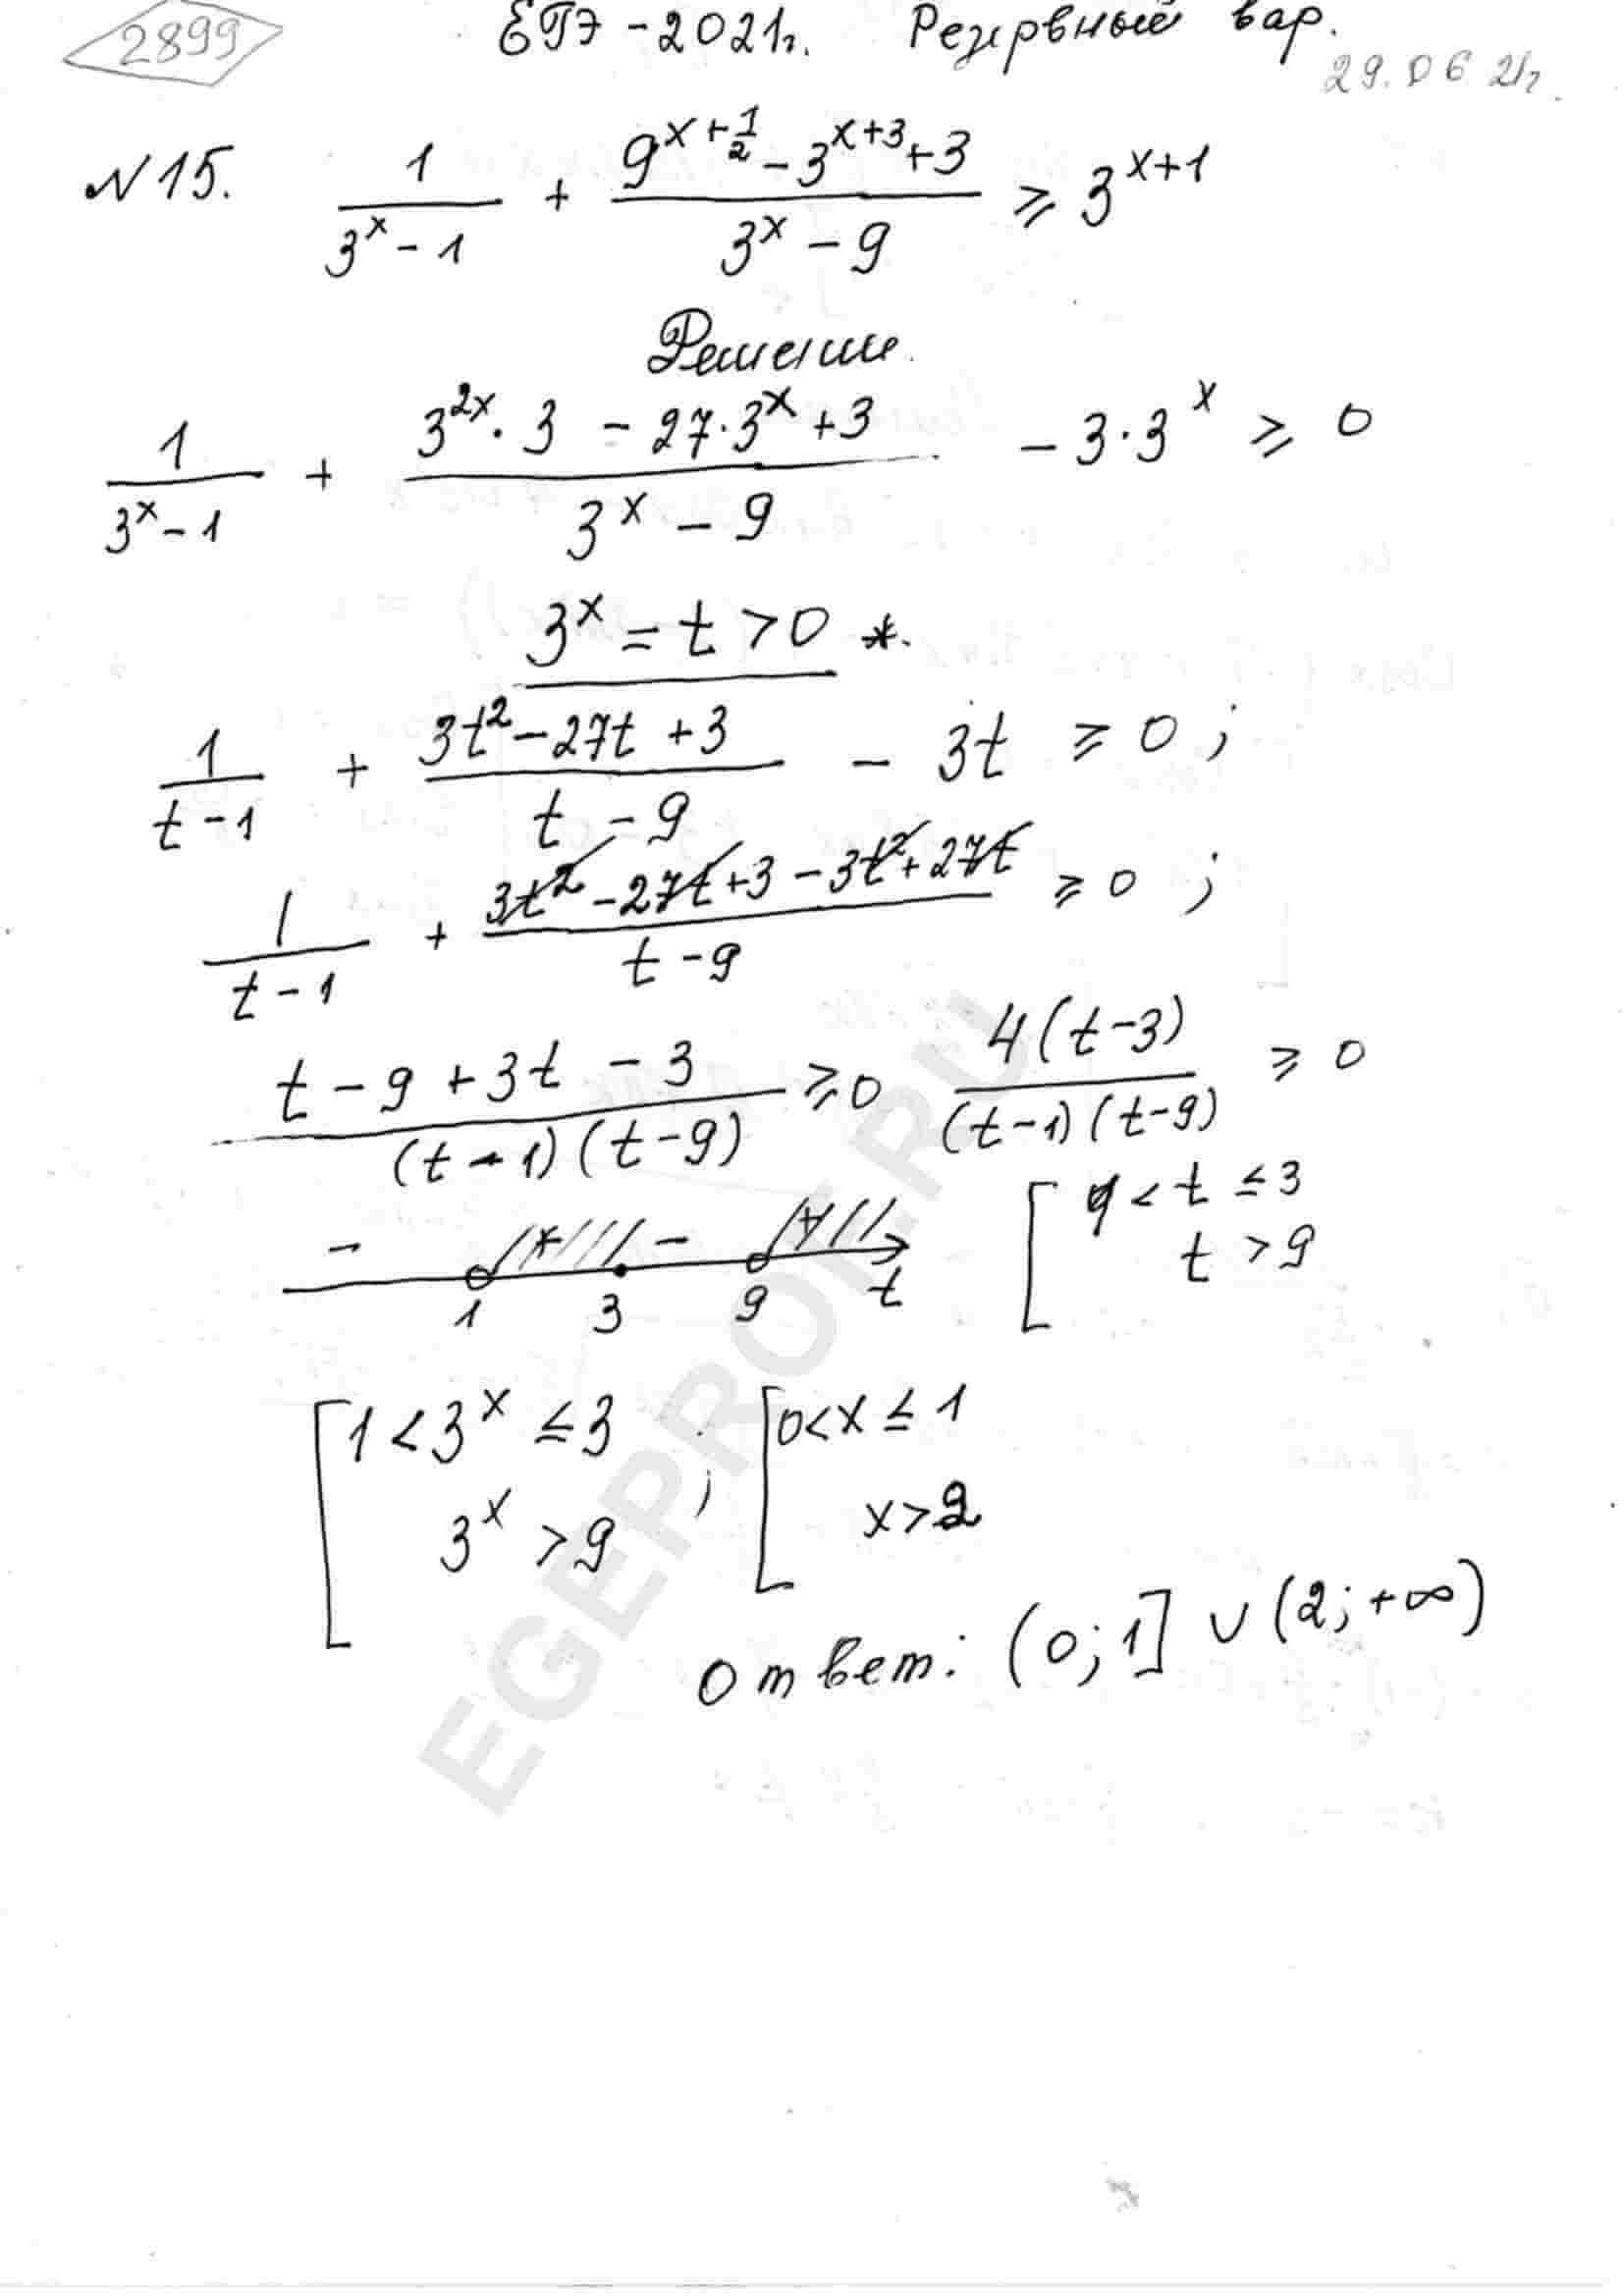 2899 ЕГЭ - 2021г. Резервный вар.
29.06 21г.
N 15. 1/(3^x - 1) + (9^(x + 1/2) - 3^(x+3) + 3)/(3^x - 9) ≥ 3^(x+1)
Решение.
1/(3^x - 1) + (3^(2x) · 3 - 27 · 3^x + 3)/(3^x - 9) - 3 · 3^x ≥ 0
3^x = t > 0 *.
1/(t - 1) + (3t² - 27t + 3)/(t - 9) - 3t ≥ 0 ;
1/(t - 1) + (3t² - 27t + 3 - 3t² + 27t)/(t - 9) ≥ 0 ;
(t - 9 + 3t - 3)/((t - 1)(t - 9)) ≥ 0 4(t - 3)/((t - 1)(t - 9)) ≥ 0
- + - + [ 1 < t ≤ 3
1 3 9 t t > 9
[ 1 < 3^x ≤ 3 ; [ 0 < x ≤ 1
3^x > 9 x > 2
Ответ: (0; 1] ∪ (2; +∞)
EGEPROF.RU